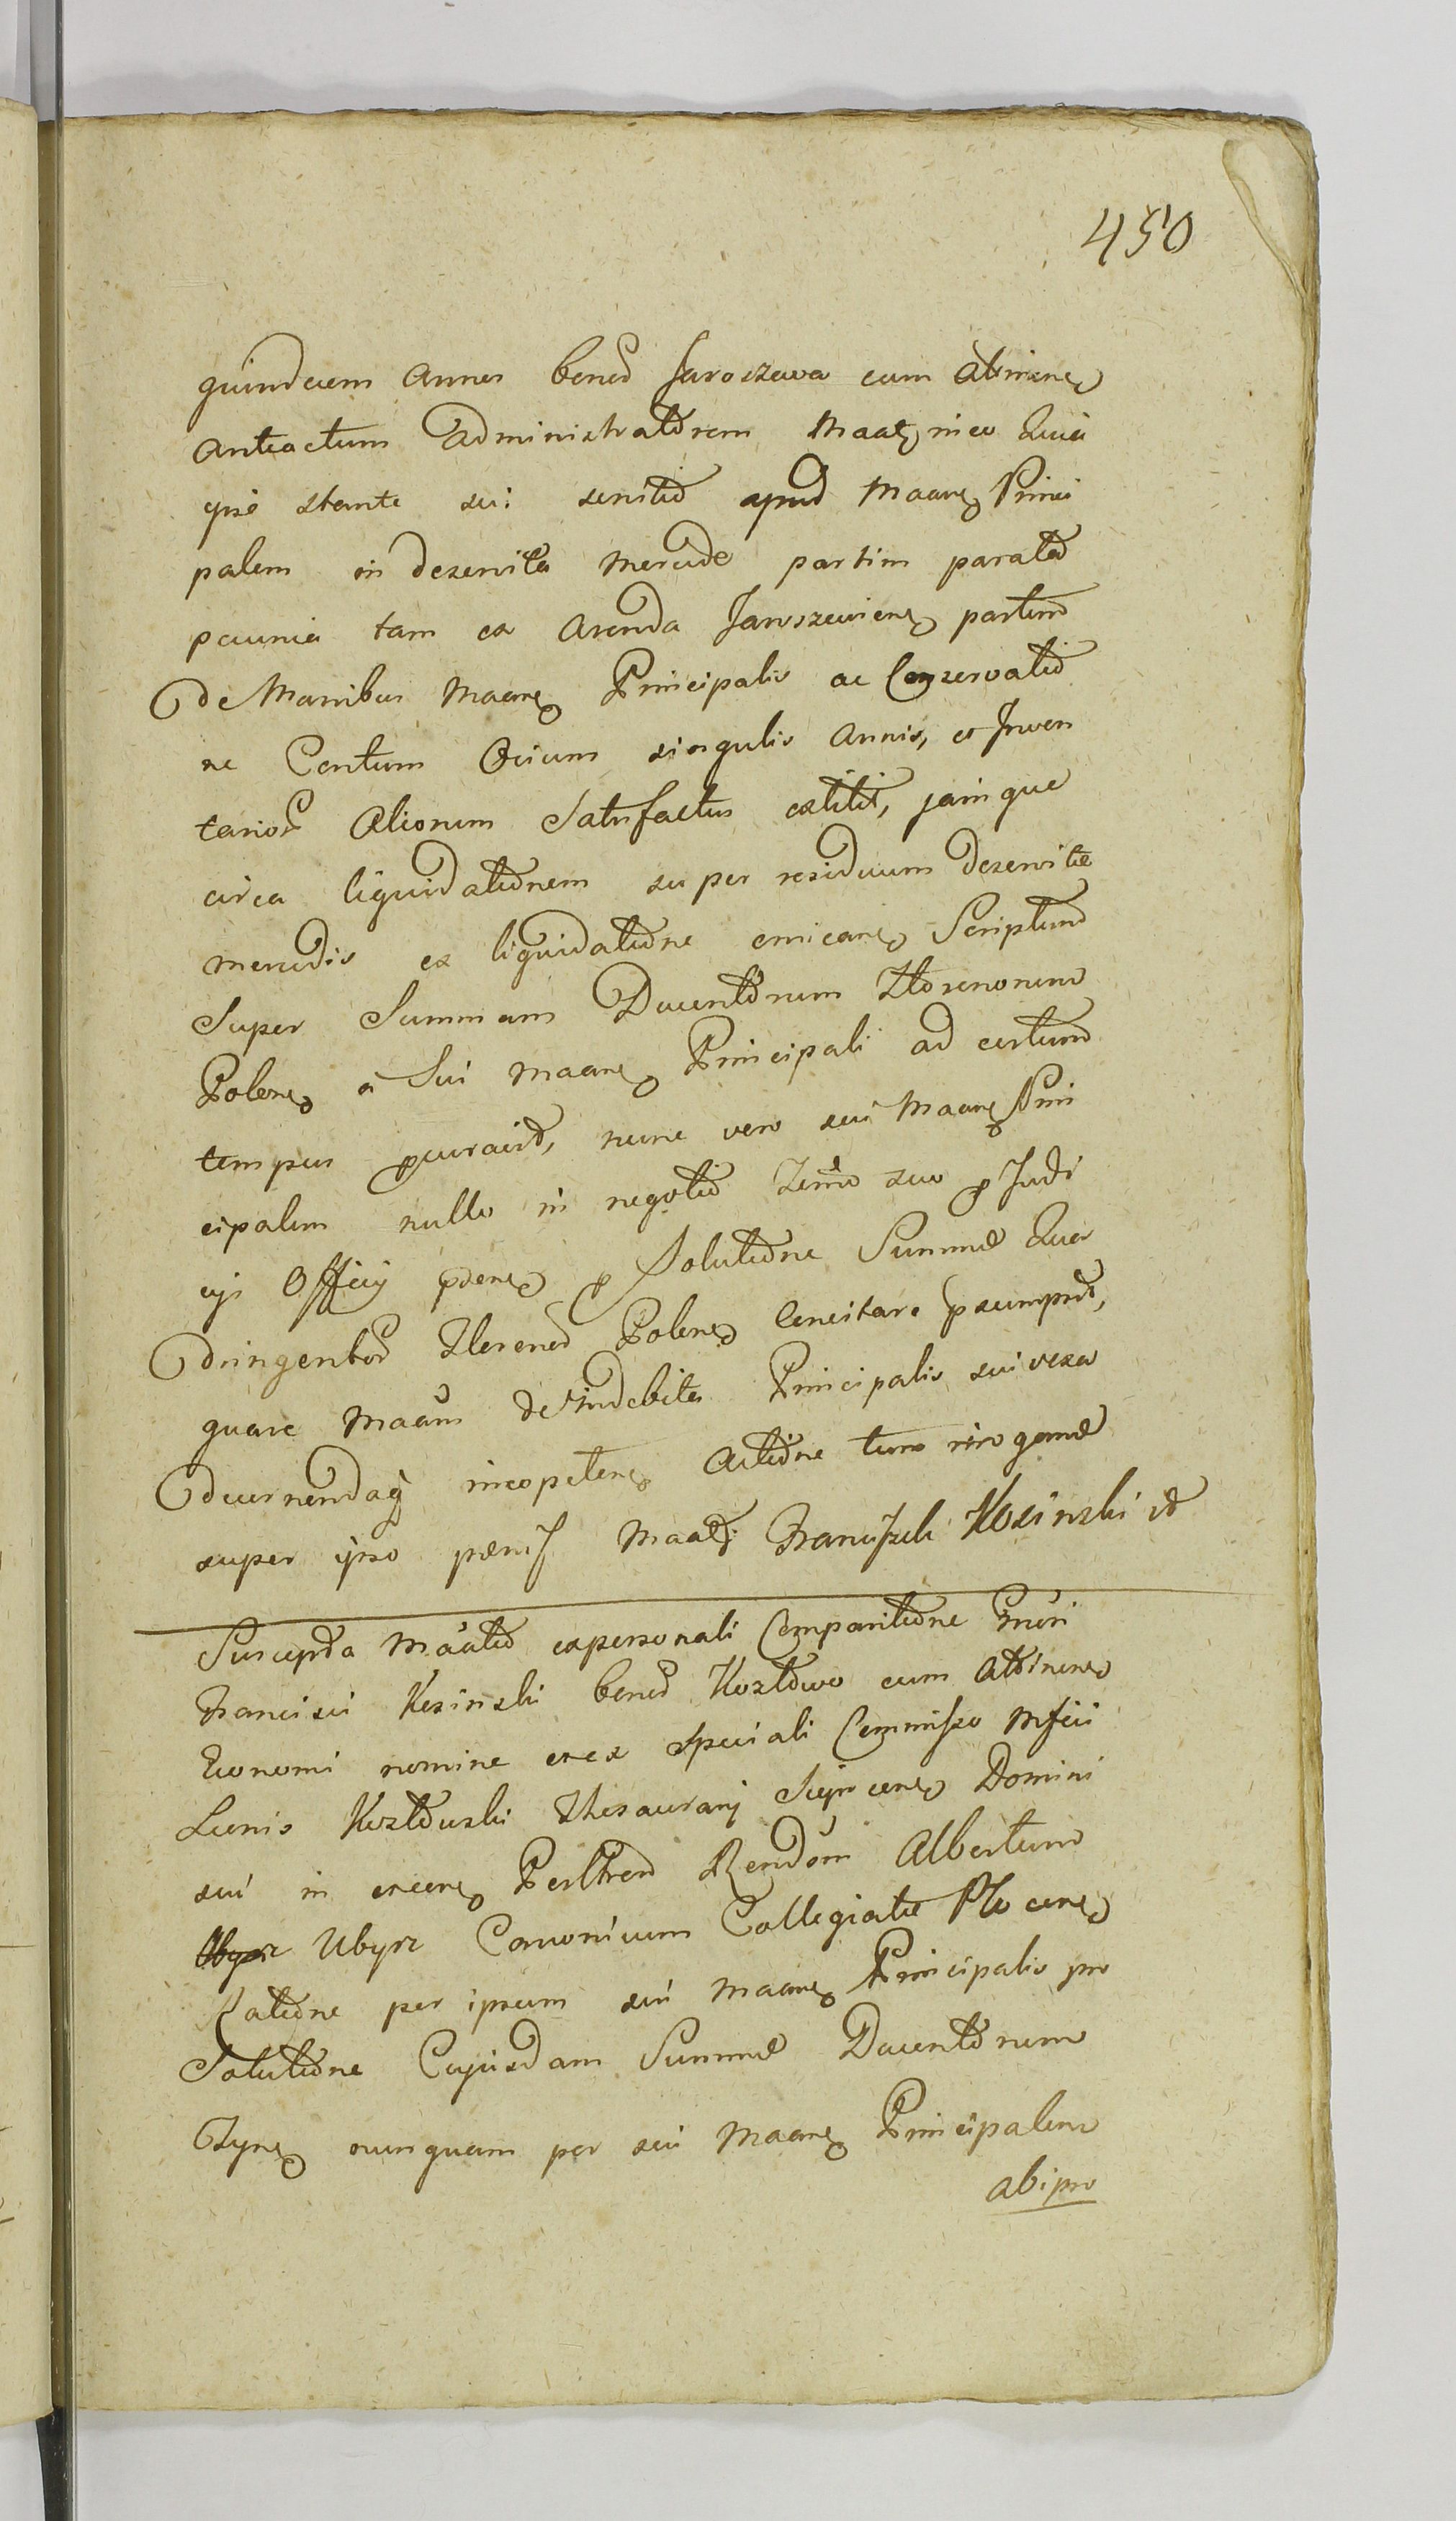 450
quindecem annos bonor Jaroszewa cum attinen
anteactum administratorem Maat in eo Quia
ipse stante sui servitio apud Maan Princi
palem in deservita mercede partim parata
pecunia tam ex arenda Jaroszeviens partim
de Manibus Maan Principalis ac Conservatio
ne Centum Ovium singulis annis, et Inven
tarior aliorum Satisfactus extitit, jamque
circa liquidationem super residuum deservitæ
mercedis ex liquidatione emican Scriptum
Super Summam Ducentorum Florenorum
Polon a Sui Maan Principali ad certum
tempus procuravit, nunc vero sui Maan Prin
cipalem nullo in negotio suo Judi
cii Officii pden p Solutione Summæ Qua
dringentor Floren Polon Concitare psumpsit,
quare Maan de indebita Principalis sui vexa
decernendaq incopeten actione tum irrogand
super ipso pænis Maatr Franciszek Kosinski
Suscepta Maatio ex personali Comparitione
Francisci Kosinski bonor Kozłowo cum attinen
Economi nomine et ex speciali Commisso Mfici
Leonis Kozłowski Thesaurarij Domini
sui in Perllrem Rendum Albertum
Ubysz Canonicum Collegiatæ Plocen
ratione per ipsum sui Maan Principalis pro
Solutione Cujusdam Summæ Ducentorum
Tyn nunquam per sui Maan Principalem
ab ipso